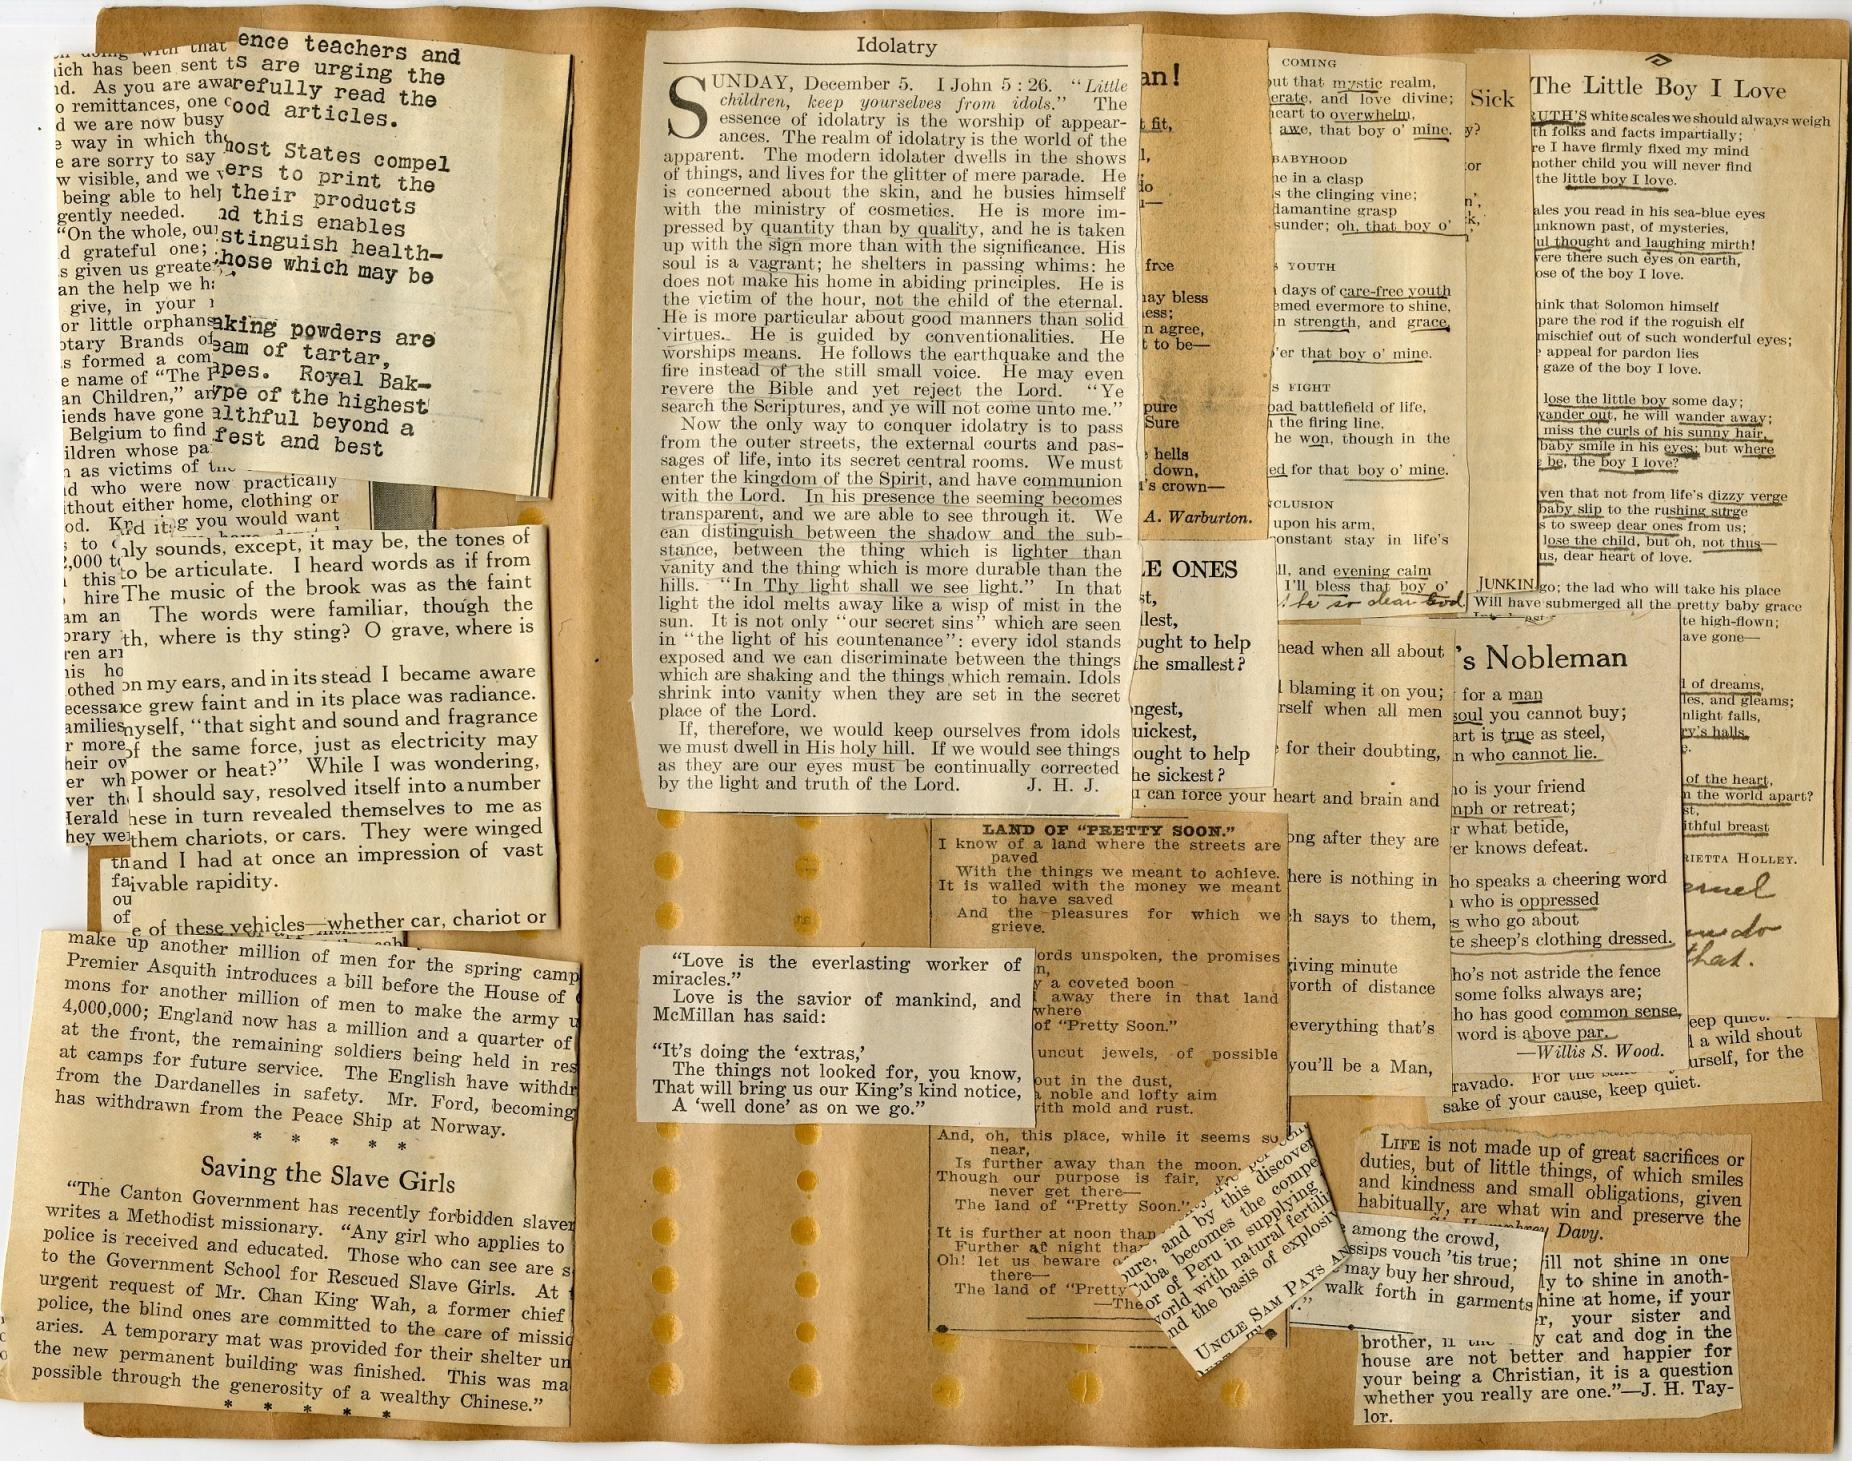 on doing with that
ich has been sent t
nd. As you are awa
o remittances, one c
d we are now busy
e way in which th
e are sorry to say
w visible, and we v
being able to help
gently needed.
"On the whole, ou
d grateful one;
s given us greate
an the help we h
give, in your
or little orphans
otary Brands of
s formed a com
e name of "The
an Children," a
iends have gone
Belgium to find
ildren whose pa
as victims of the
d who were now practically
ithout either home, clothing or
od. K
ence teachers and
s are urging the
refully read the
ood articles.
most States compel
ers to print the
their products
nd this enables
stinguish health-
hose which may be
aking powders are
eam of tartar,
apes. Royal Bak-
ype of the highest
althful beyond a
fest and best
rd it; g you would want
nly sounds, except, it may be, the tones of
to be articulate. I heard words as if from
The music of the brook was as the faint
The words were familiar, though the
th, where is thy sting? O grave, where is
on my ears, and in its stead I became aware
ce grew faint and in its place was radiance.
myself, "that sight and sound and fragrance
of the same force, just as electricity may
power or heat?" While I was wondering,
I should say, resolved itself into a number
hese in turn revealed themselves to me as
them chariots, or cars. They were winged
and I had at once an impression of vast
ivable rapidity.
e of these vehicles—whether car, chariot or
to
2,000 to
this
hire
am an
orary
ren ari
his ho
othed
ecessa
amilies
r more
heir ov
er wh
ver th
Herald
hey we
th
fa
ou
of
make up another million of men for the spring camp
Premier Asquith introduces a bill before the House of
mons for another million of men to make the army u
4,000,000; England now has a million and a quarter of
at the front, the remaining soldiers being held in res
at camps for future service. The English have withdr
from the Dardanelles in safety. Mr. Ford, becoming
has withdrawn from the Peace Ship at Norway.
* * * * *
Saving the Slave Girls
"The Canton Government has recently forbidden slaver
writes a Methodist missionary. "Any girl who applies to
police is received and educated. Those who can see are s
to the Government School for Rescued Slave Girls. At
urgent request of Mr. Chan King Wah, a former chief
police, the blind ones are committed to the care of missio
aries. A temporary mat was provided for their shelter un
the new permanent building was finished. This was ma
possible through the generosity of a wealthy Chinese."
* * * * *
Idolatry
SUNDAY, December 5. I John 5 : 26. "Little
children, keep yourselves from idols." The
essence of idolatry is the worship of appear-
ances. The realm of idolatry is the world of the
apparent. The modern idolater dwells in the shows
of things, and lives for the glitter of mere parade. He
is concerned about the skin, and he busies himself
with the ministry of cosmetics. He is more im-
pressed by quantity than by quality, and he is taken
up with the sign more than with the significance. His
soul is a vagrant; he shelters in passing whims: he
does not make his home in abiding principles. He is
the victim of the hour, not the child of the eternal.
He is more particular about good manners than solid
virtues. He is guided by conventionalities. He
worships means. He follows the earthquake and the
fire instead of the still small voice. He may even
revere the Bible and yet reject the Lord. "Ye
search the Scriptures, and ye will not come unto me."
Now the only way to conquer idolatry is to pass
from the outer streets, the external courts and pas-
sages of life, into its secret central rooms. We must
enter the kingdom of the Spirit, and have communion
with the Lord. In his presence the seeming becomes
transparent, and we are able to see through it. We
can distinguish between the shadow and the sub-
stance, between the thing which is lighter than
vanity and the thing which is more durable than the
hills. "In Thy light shall we see light." In that
light the idol melts away like a wisp of mist in the
sun. It is not only "our secret sins" which are seen
in "the light of his countenance": every idol stands
exposed and we can discriminate between the things
which are shaking and the things which remain. Idols
shrink into vanity when they are set in the secret
place of the Lord.
If, therefore, we would keep ourselves from idols
we must dwell in His holy hill. If we would see things
as they are our eyes must be continually corrected
by the light and truth of the Lord. J. H. J.
"Love is the everlasting worker of
miracles."
Love is the savior of mankind, and
McMillan has said:
"It's doing the 'extras,'
The things not looked for, you know,
That will bring us our King's kind notice,
A 'well done' as on we go."
an!
fit,
l,
do
u—
free
nay bless
ess;
n agree,
t to be—
pure
Sure
hells
down,
's crown—
A. Warburton.
E ONES
st,
llest,
ought to help
he smallest?
ongest,
uickest,
ought to help
he sickest?
LAND OF "PRETTY SOON."
I know of a land where the streets are
paved
With the things we meant to achieve.
It is walled with the money we meant
to have saved
And the pleasures for which we
grieve.
ords unspoken, the promises
n,
y a coveted boon
away there in that land
where
of "Pretty Soon."
uncut jewels, of possible
out in the dust,
a noble and lofty aim
with mold and rust.
And, oh, this place, while it seems so
near,
Is further away than the moon.
Though our purpose is fair, y
never get there—
The land of "Pretty Soon."
It is further at noon than
Further at night tha
Oh! let us beware o
there—
The land of "Pretty
—The
COMING
out that mystic realm,
erate, and love divine;
heart to overwhelm,
awe, that boy o' mine.
BABYHOOD
ne in a clasp
s the clinging vine;
damantine grasp
sunder; oh, that boy o'
S YOUTH
days of care-free youth
emed evermore to shine,
n strength, and grace,
'er that boy o' mine.
S FIGHT
oad battlefield of life,
the firing line.
he won, though in the
ed for that boy o' mine.
NCLUSION
upon his arm,
onstant stay in life's
ll, and evening calm
I'll bless that boy o'
he so dear God
Sick
y?
or
n',
k,
JUNKIN
head when all about
blaming it on you;
rself when all men
for their doubting,
u can force your heart and brain and
ong after they are
here is nothing in
h says to them,
giving minute
worth of distance
everything that's
you'll be a Man,
The Little Boy I Love
RUTH'S white scales we should always weigh
th folks and facts impartially;
re I have firmly fixed my mind
nother child you will never find
the little boy I love.
ales you read in his sea-blue eyes
unknown past, of mysteries,
ul thought and laughing mirth!
were there such eyes on earth,
ose of the boy I love.
hink that Solomon himself
pare the rod if the roguish elf
mischief out of such wonderful eyes;
appeal for pardon lies
gaze of the boy I love.
lose the little boy some day;
wander out, he will wander away;
miss the curls of his sunny hair,
baby smile in his eyes; but where
be, the boy I love?
ven that not from life's dizzy verge
baby slip to the rushing surge
s to sweep dear ones from us;
lose the child, but oh, not thus—
us, dear heart of love.
go; the lad who will take his place
Will have submerged all the pretty baby grace
te high-flown;
ave gone—
l of dreams,
les, and gleams;
nlight falls,
ry's halls,
e.
of the heart,
n the world apart?
st,
ithful breast
RIETTA HOLLEY.
do
that.
's Nobleman
for a man
soul you cannot buy;
art is true as steel,
n who cannot lie.
ho is your friend
mph or retreat;
r what betide,
er knows defeat.
ho speaks a cheering word
who is oppressed
s who go about
te sheep's clothing dressed.
ho's not astride the fence
some folks always are;
ho has good common sense,
word is above par.
—Willis S. Wood.
eep quiet.
a wild shout
urself, for the
ravado. For the
sake of your cause, keep quiet.
LIFE is not made up of great sacrifices or
duties, but of little things, of which smiles
and kindness and small obligations, given
habitually, are what win and preserve the
Humphrey Davy.
oure, and by this discover
Cuba becomes the compe
or of Peru in supplying
world with natural fertili
nd the basis of explosiv
UNCLE SAM PAYS AN
among the crowd,
ssips vouch 'tis true;
may buy her shroud,
walk forth in garments
ill not shine in one
ly to shine in anoth-
hine at home, if your
r, your sister and
brother, if the y cat and dog in the
house are not better and happier for
your being a Christian, it is a question
whether you really are one."—J. H. Tay-
lor.